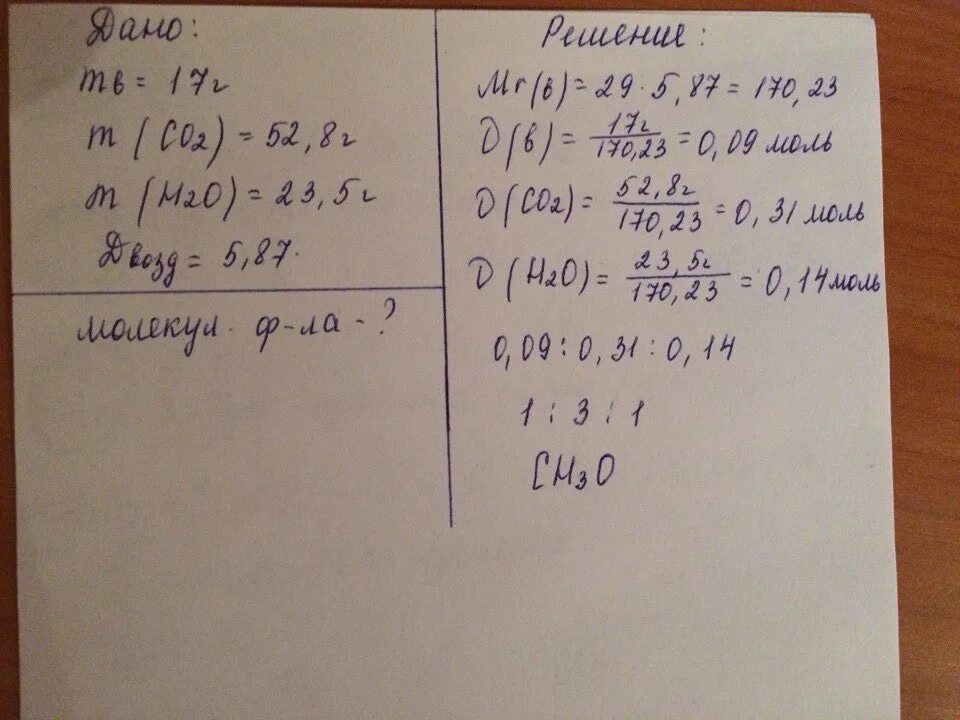 Дано:
mв = 17г
m (CO₂) = 52,8г
m (H₂O) = 23,5г
Двозд = 5,87.
молекул. ф-ла - ?
Решение:
Mr(в) = 29 · 5,87 = 170,23
D(в) = 17г / 170,23 = 0,09 моль
D(CO₂) = 52,8г / 170,23 = 0,31 моль
D(H₂O) = 23,5г / 170,23 = 0,14 моль
0,09 : 0,31 : 0,14
1 : 3 : 1
CH₃O